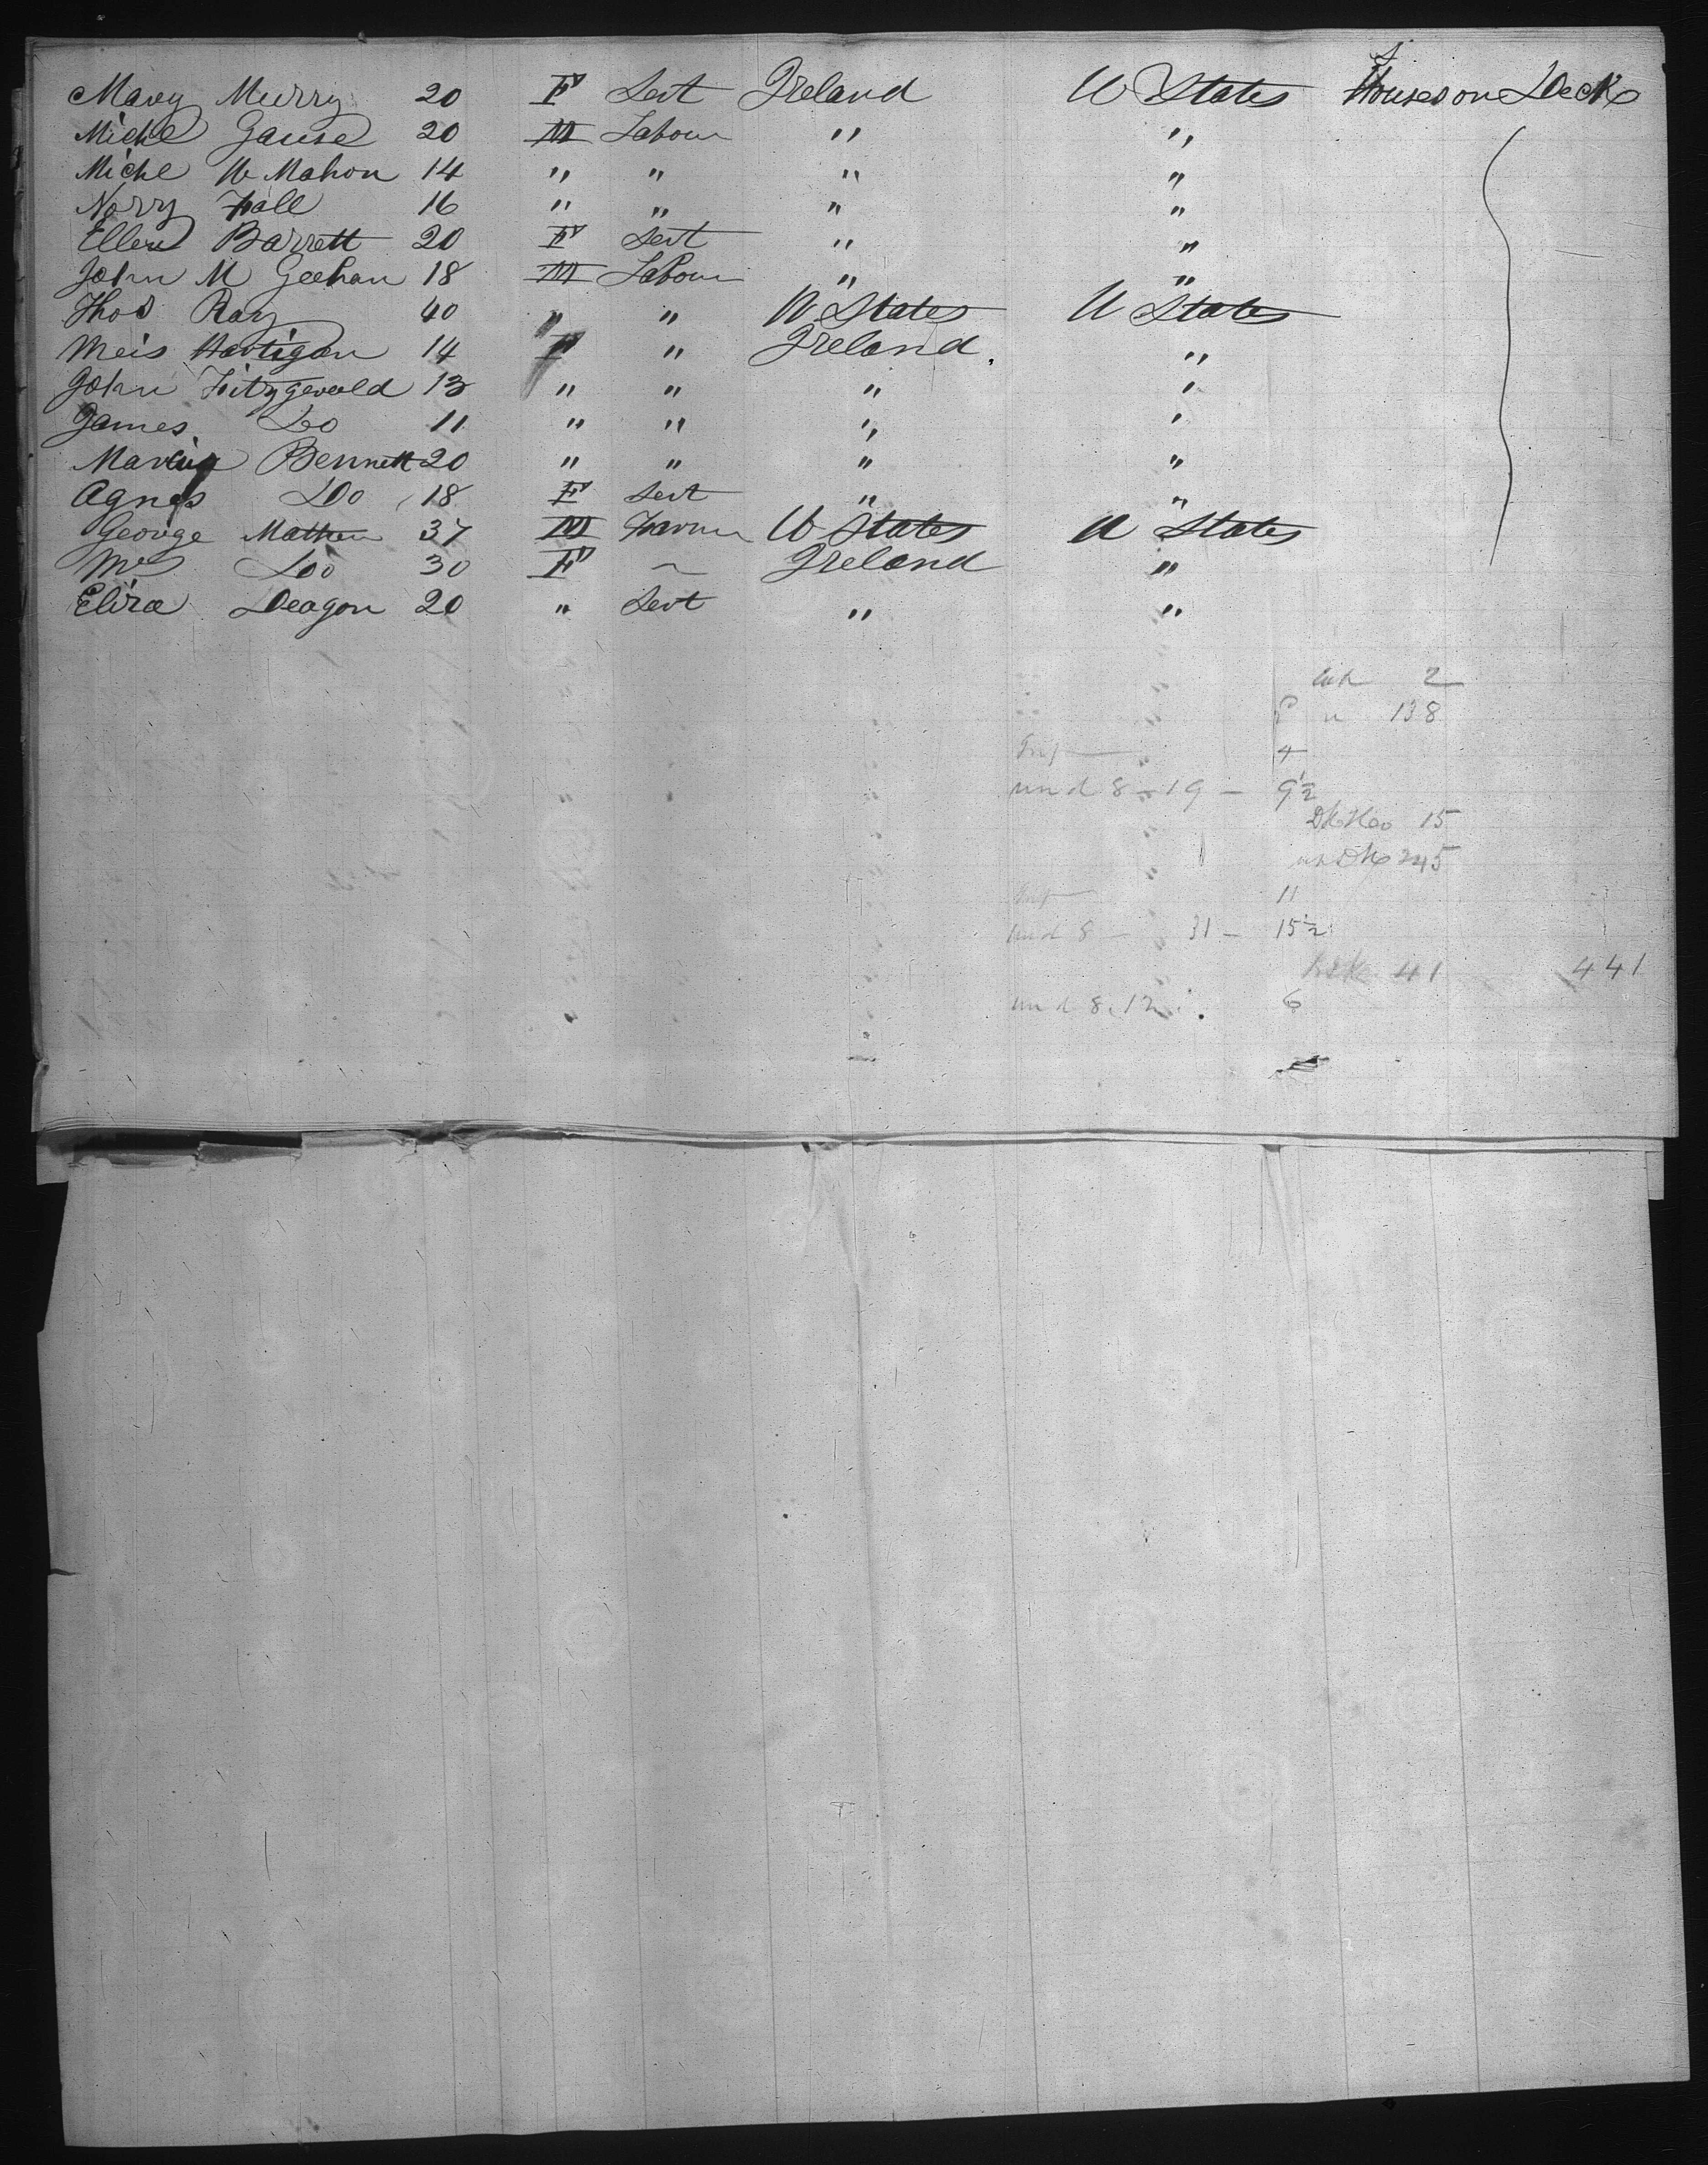 Mary Murry 20 F Servt Ireland U States Houses on Deck
Michl Gause 20 M Labour " "
Michl McMahon 14 " " " "
Norry Fall 16 " " " "
Ellen Barrett 20 F Servt " "
John McGeehan 18 M Labour " "
Thos Ray 40 " " U States U States
Meis Hartigan 14 F " Ireland "
John Fitzgerald 13 " " " "
James Do 11 " " " "
Bennett 20 " " " "
Agnes Do 18 F Servt " "
George Mathew 37 M Farmer U States U States
Mrs Do 30 F ~ Ireland "
Eliza Deagon 20 " Servt " "
2
138
Inf 4
und 8 - 19 - 9½
Dk Ho 15
un Dk 245
Inf 11
und 8 - 31 - 15½
41 441
und 8. 12 6